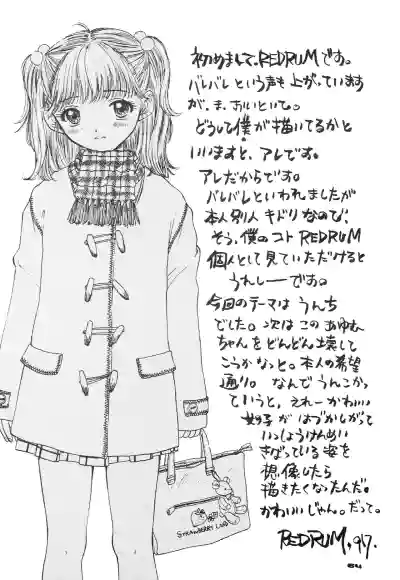 初めまして、REDRUMです。
バレバレという声も上がっています
が、ま、おいといて。
どうして僕が描いてるかと
いいますと、アレです。
アレだからです。
バレバレといわれましたが
本人別人キドリなので、
そう、僕のコトREDRUM
個人として見ていただけると
うれしーーです。
今回のテーマはうんち
でした。次はこのあゆむ
ちゃんをどんどん壊して
こうかなっと。本人の希望
通り。なんでうんこかっ
ていうと、えれーかわいい
女子がはづかしがって
いっしょうけんめい
きばっている姿を
想像したら
描きたくなったんだ。
かわいいじゃん。だって。
REDRUM, 97.
STRAWBERRY LAND
64